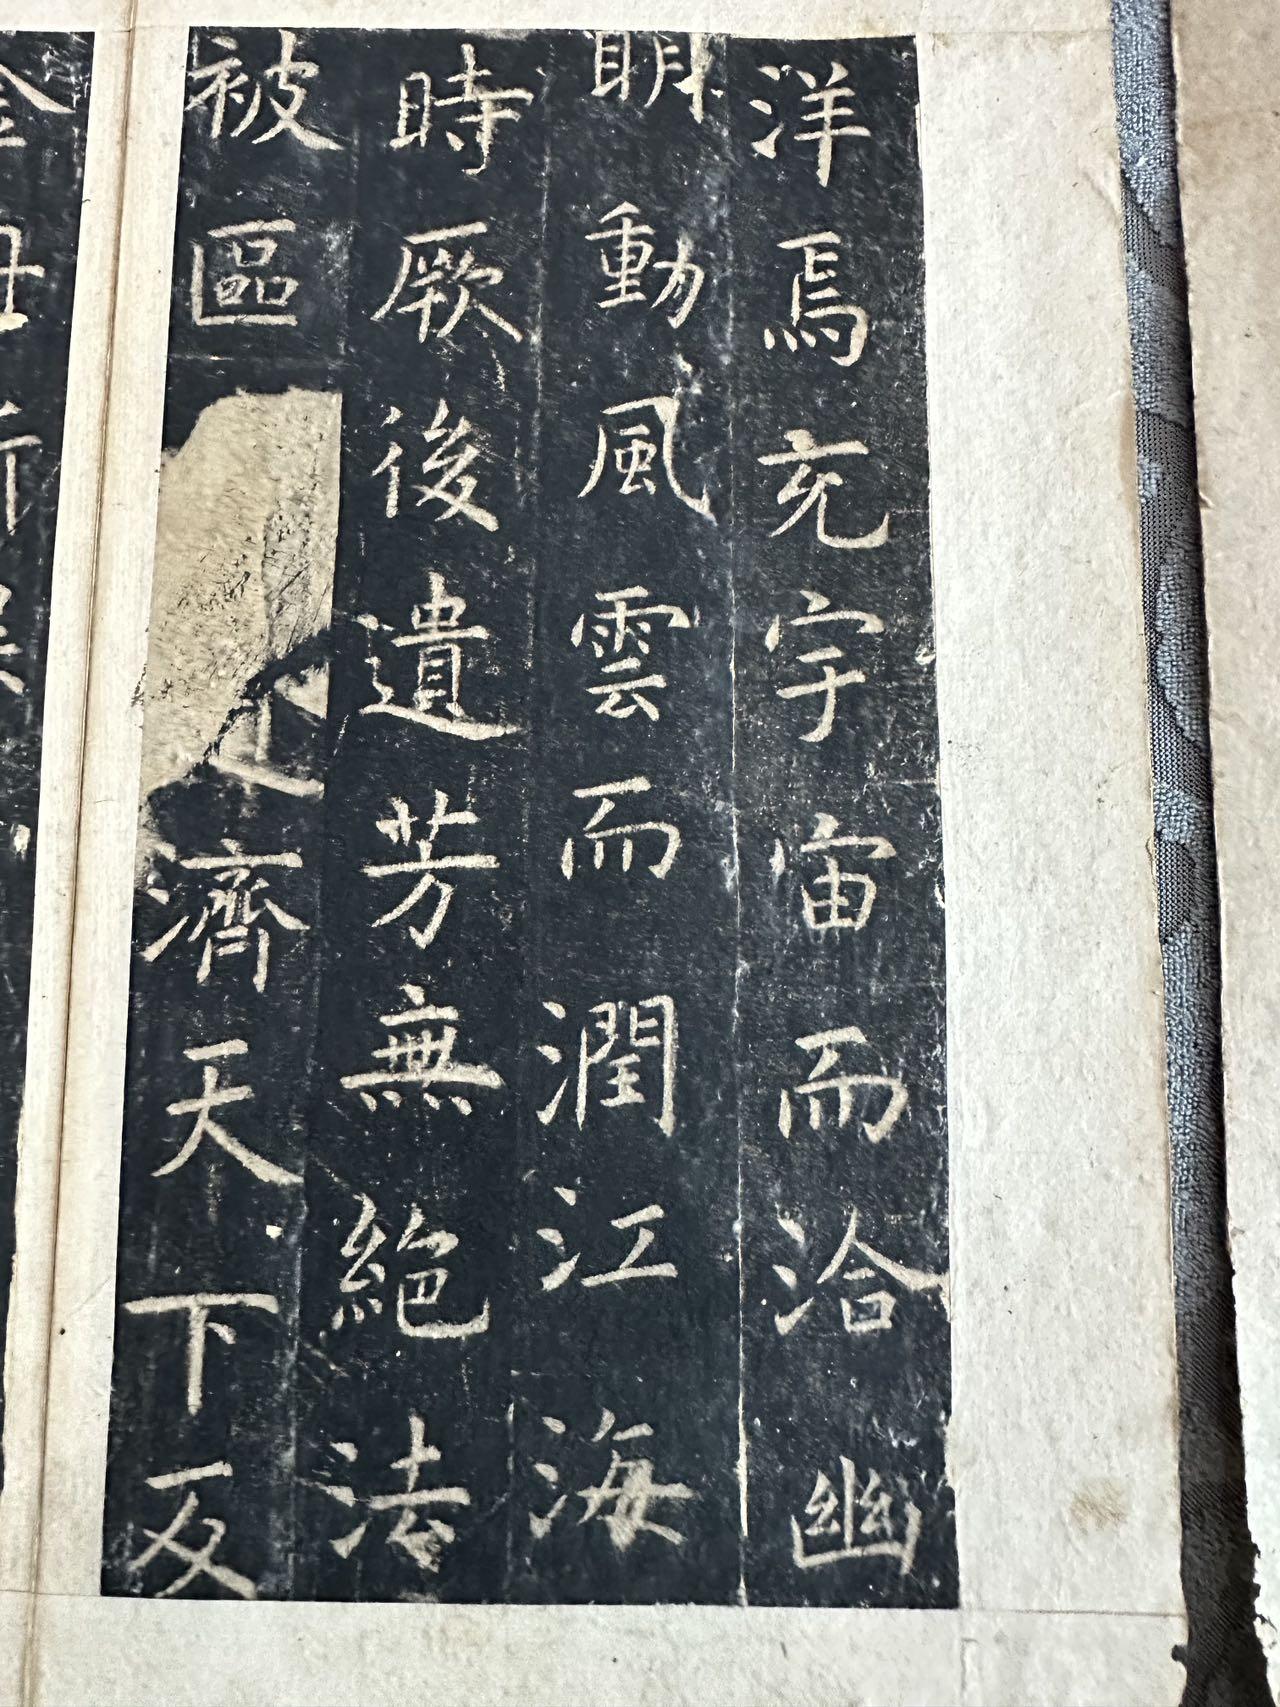 洋焉充宇宙而洽幽
明動風雲而潤江海
時厥後遺芳無絕法
被區濟天下反